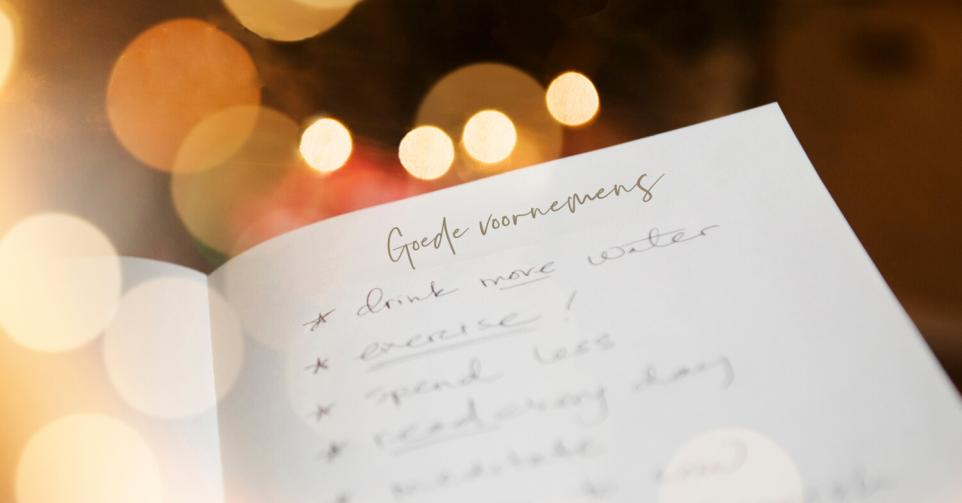 Goede voornemens
* drink more water
* exercise!
* spend less
* read every day
* meditate
to